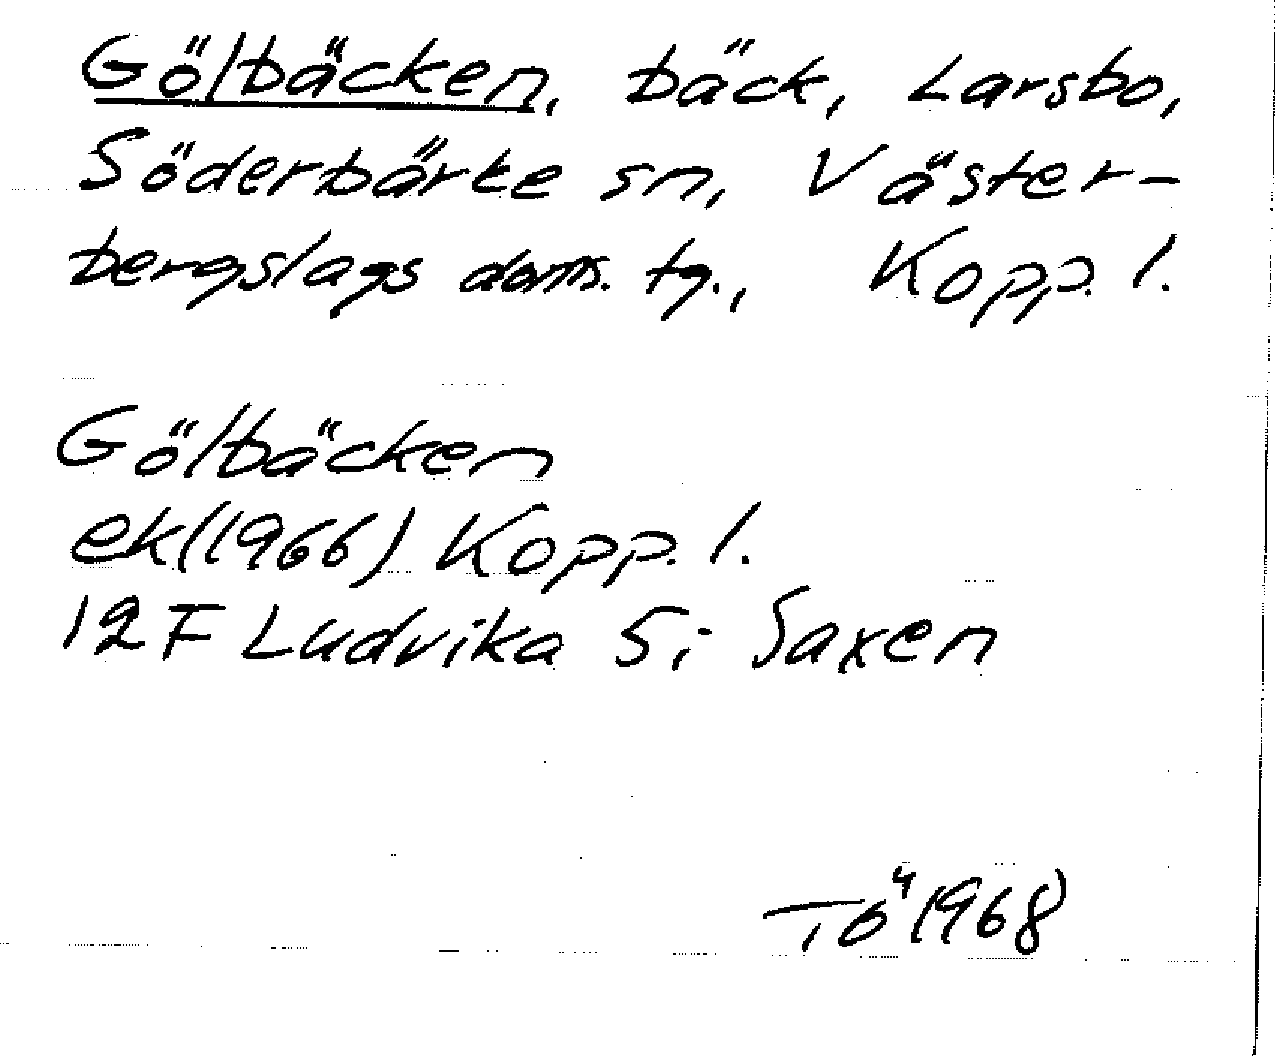 Gölbäcken, bäck, Larsbo,
Söderbärke sn, Väster-
bergslags doms. tg., Kopp. l.
Gölbäcken
ek(1966) Kopp. l.
12 F Ludvika S; Saxen
TÖ (1968)